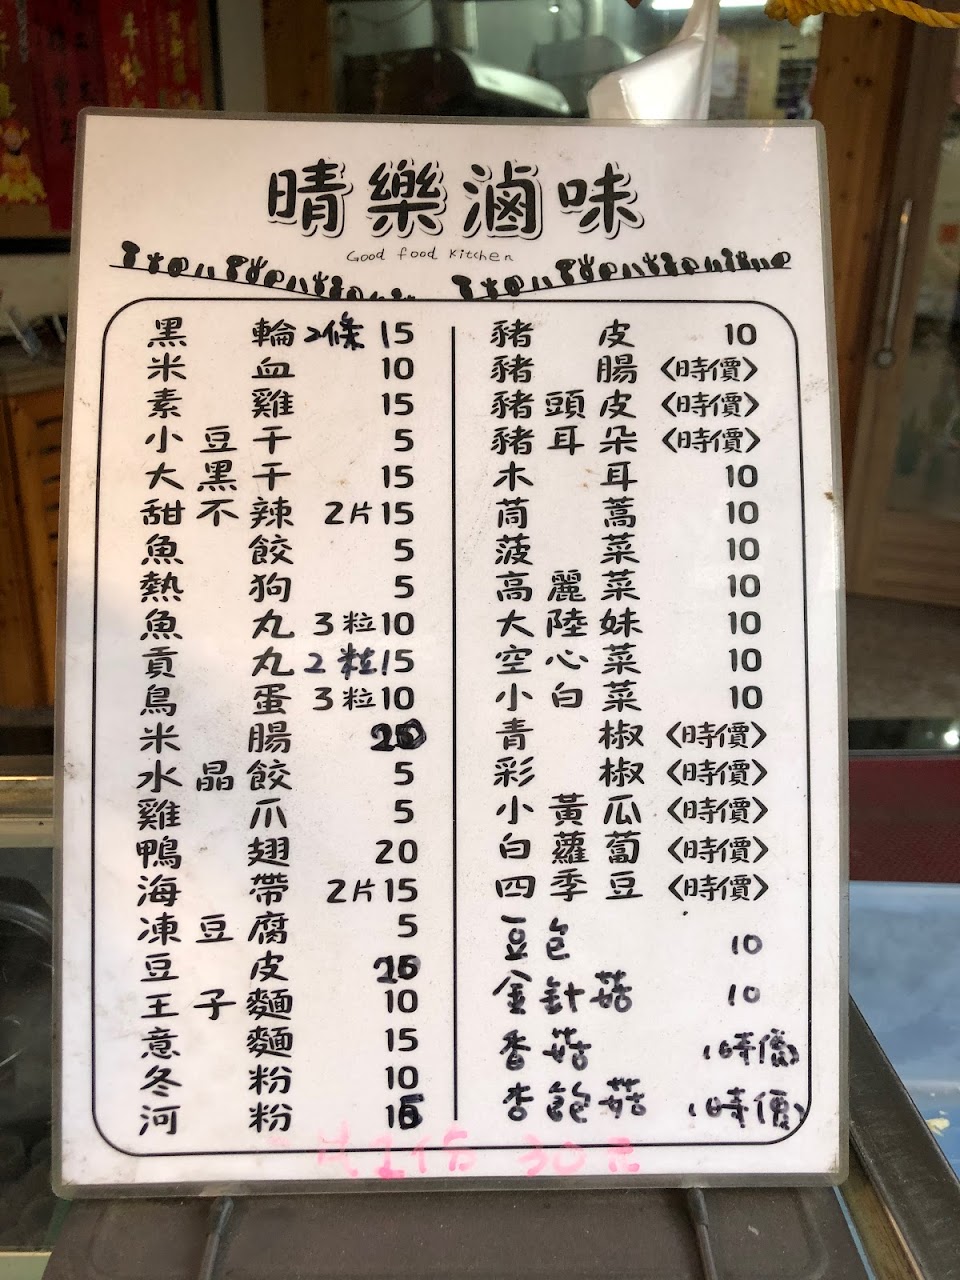 晴樂滷味
Good food Kitchen
黑輪2條 15
米血 10
素雞 15
小豆干 5
大黑干 15
甜不辣 2片15
魚餃 5
熱狗 5
魚丸 3粒10
貢丸 2粒15
鳥蛋 3粒10
米腸
水晶餃 5
雞爪 5
鴨翅 20
海帶 2片15
凍豆腐 5
豆皮
王子麵 10
意麵 15
冬粉 10
河粉 15
豬皮 10
豬腸 〈時價〉
豬頭皮 〈時價〉
豬耳朵 〈時價〉
木耳 10
茼蒿 10
菠菜 10
高麗菜 10
大陸妹 10
空心菜 10
小白菜 10
青椒 〈時價〉
彩椒 〈時價〉
小黃瓜 〈時價〉
白蘿蔔 〈時價〉
四季豆 〈時價〉
豆包 10
金針菇 10
香菇 (時價)
杏鮑菇 (時價)
30元